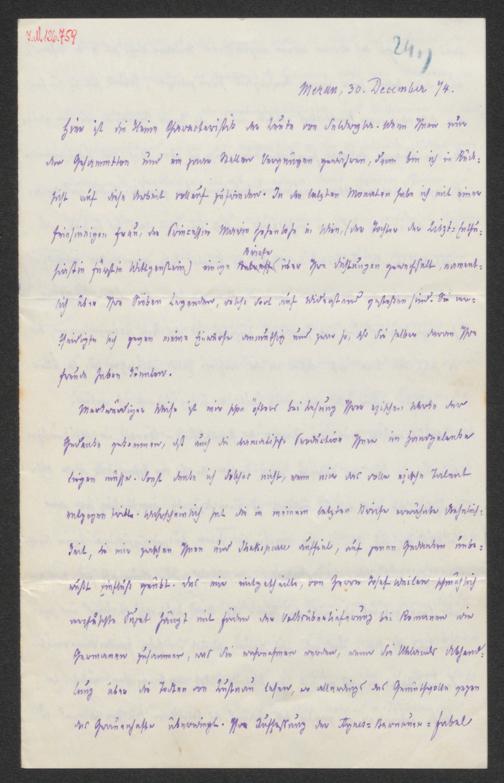 24.)
Meran, 30. December 74.
Hier ist die kleine Charakteristik der Leute von Seldwyla. Wenn Ihnen nur
der Gesammtton und ein paar Stellen Vergnügen gewähren, dann bin ich in Rück-
sicht auf diese Arbeit vollauf zufrieden. In den letzten Monaten habe ich mit einer
feinsinnigen Frau, der Princessin Marie Hohenlohe in Wien, (der Tochter der Liszt-
Fürstin Wittgenstein) einige Briefe über Ihre Dichtungen gewechselt, nament-
lich über Ihre Sieben Legenden, welche dort auf Widerstand gestoßen sind. Sie ver-
theidigte sich gegen meine Einwürfe anmuthig und zwar so, daß Sie selber daran Ihre
Freude haben könnten.
Merkwürdiger Weise ist mir schon öfters bei Lesung Ihrer epischen Werke der
Gedanke gekommen, daß auch die dramatische Production Ihnen im
liegen müsse. Sonst denke ich Solches nicht, wenn mir das volle epische Talent
entgegen tritt. Wahrscheinlich hat die in meinem letzten Briefe erwähnte Aehnlich-
keit, die mir zwischen Ihnen und Shakespeare auffiel, auf jenen Gedanken unbe-
wußt Einfluß geübt. Das mir mitgetheilte, von Herrn Josef Weilen schmählich
Süjet hängt mit Fäden der Volksüberlieferung bei Romanen wie
Germanen zusammen, was Sie wahrnehmen werden, wenn Sie Uhlands Abhand-
lung über die Todten von Lustnau lesen, wo allerdings das Gemüthvolle gegen
das Grauenhafte überwiegt. Ihre Auffassung der Agnes-Bernauer-Fabel